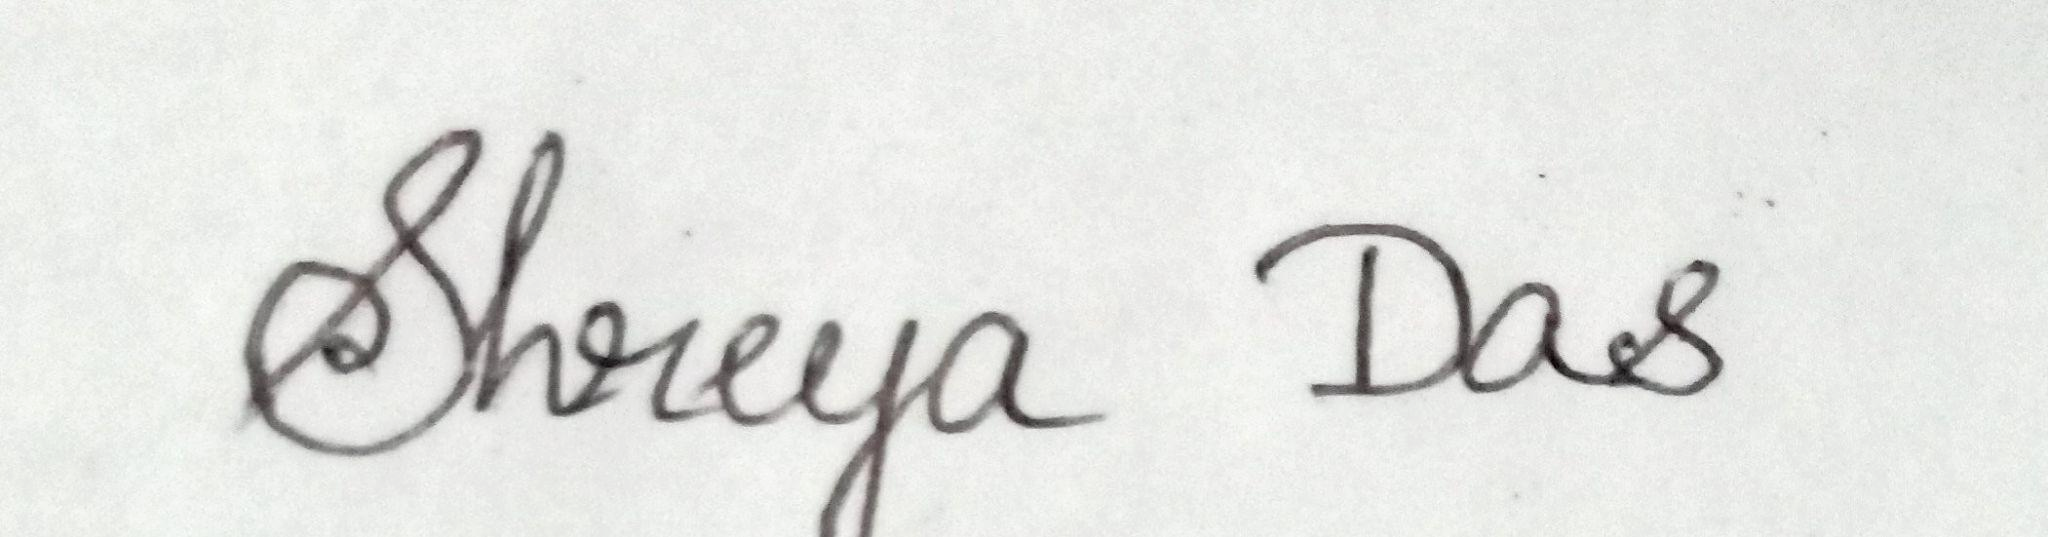 Shreya Das